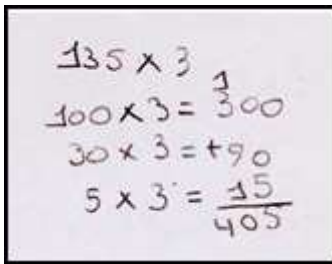 135 x 3
1
100 x 3 = 300
30 x 3 = +90
5 x 3 = 15
405